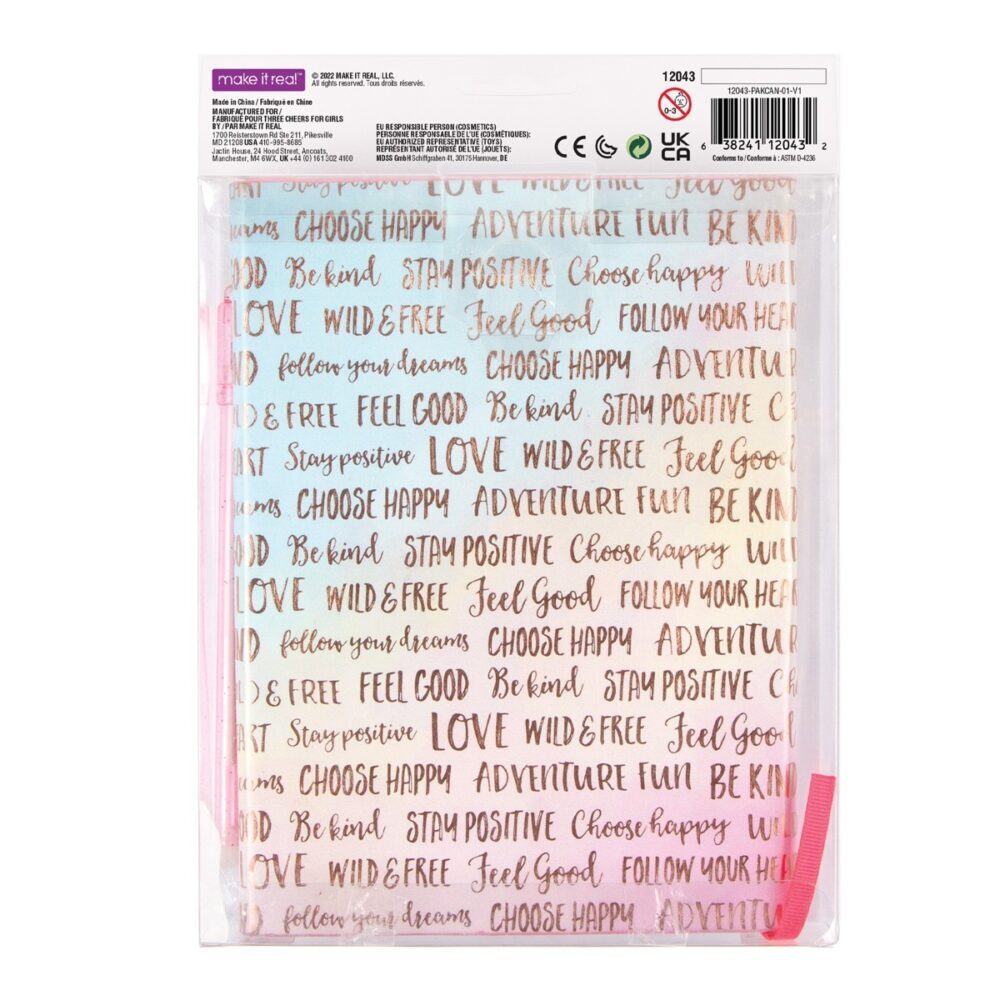 make it real™
© 2022 MAKE IT REAL, LLC.
All rights reserved. Tous droits réservés.
Made in China / Fabriqué en Chine
MANUFACTURED FOR /
FABRIQUÉ POUR THREE CHEERS FOR GIRLS
BY / PAR MAKE IT REAL
1700 Reisterstown Rd Ste 211, Pikesville
MD 21208 USA 410-995-8685
Jactin House, 24 Hood Street, Ancoats,
Manchester, M4 6WX, UK +44 (0) 161 302 4100
EU RESPONSIBLE PERSON (COSMETICS)
PERSONNE RESPONSABLE DE L'UE (COSMÉTIQUES):
EU AUTHORIZED REPRESENTATIVE (TOYS)
REPRÉSENTANT AUTORISÉ DE L'UE (JOUETS):
MDSS GmbH Schiffgraben 41, 30175 Hannover, DE
CE
0-3
UK
CA
12043
12043-PAKCAN-01-V1
6 38241 12043 2
Conforms to / Conforme à : ASTM D-4236
ART Stay positive LOVE WILD & FREE Feel Good
ams CHOOSE HAPPY ADVENTURE FUN BE KIN
OOD Be kind STAY POSITIVE Choose happy WIL
LOVE WILD & FREE Feel Good FOLLOW YOUR HEA
ND follow your dreams CHOOSE HAPPY ADVENTU
LD & FREE FEEL GOOD Be kind STAY POSITIVE C
ART Stay positive LOVE WILD & FREE Feel Good
ams CHOOSE HAPPY ADVENTURE FUN BE KIN
OOD Be kind STAY POSITIVE Choose happy WIL
LOVE WILD & FREE Feel Good FOLLOW YOUR HEA
ND follow your dreams CHOOSE HAPPY ADVENTU
LD & FREE FEEL GOOD Be kind STAY POSITIVE Ch
ART Stay positive LOVE WILD & FREE Feel Good
ams CHOOSE HAPPY ADVENTURE FUN BE KIN
OOD Be kind STAY POSITIVE Choose happy WIL
LOVE WILD & FREE Feel Good FOLLOW YOUR HEA
ND follow your dreams CHOOSE HAPPY ADVENTU